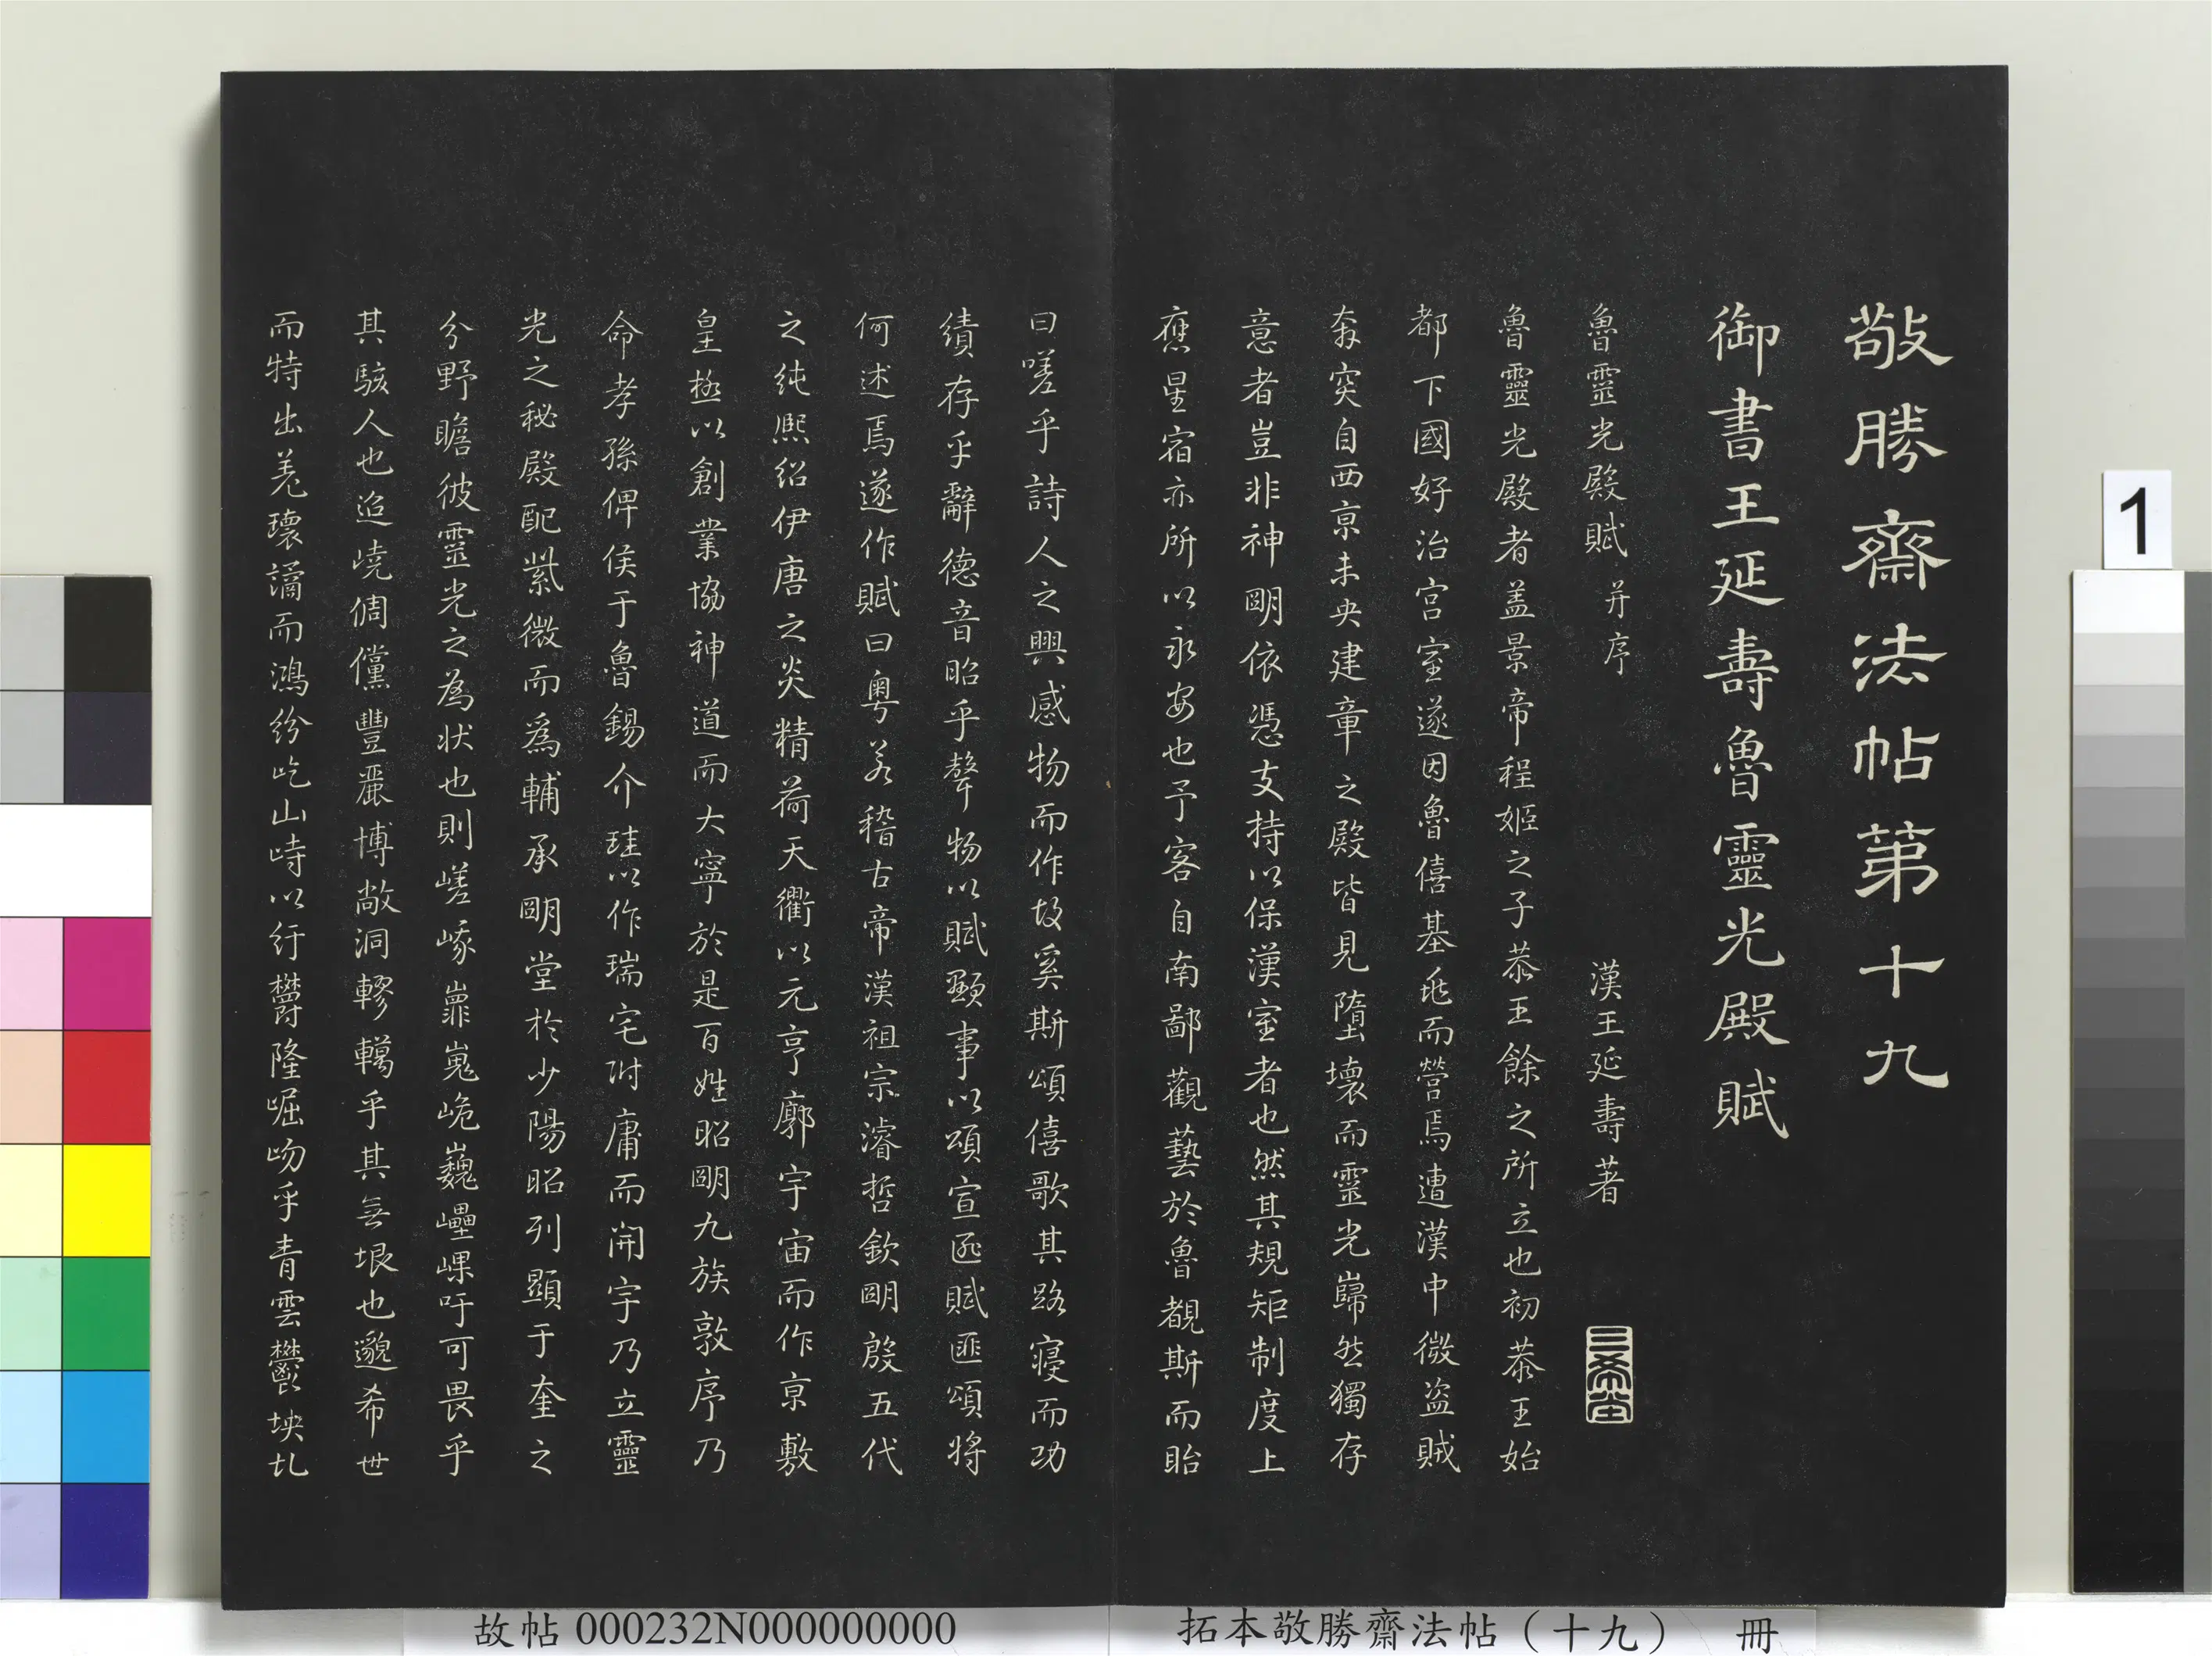 敬勝齋法帖第十九
御書王延壽魯靈光殿賦
魯靈光殿賦 并序 漢王延壽著
三希堂
魯靈光殿者蓋景帝程姬之子恭王餘之所立也初恭王始
都下國好治宮室遂因魯僖基兆而營焉遭漢中微盜賊
奔突自西京未央建章之殿皆見墮壞而靈光巋然獨存
意者豈非神朙依憑支持以保漢室者也然其規矩制度上
應星宿亦所以永安也予客自南鄙觀藝於魯覩斯而眙
曰嗟乎詩人之興感物而作故奚斯頌僖歌其路寢而功
績存乎辭德音昭乎聲物以賦顯事以頌宣匪賦匪頌將
何述焉遂作賦曰粵若稽古帝漢祖宗濬哲欽朙殷五代
之純熙紹伊唐之炎精荷天衢以元亨廓宇宙而作京敷
皇極以創業協神道而大寧於是百姓昭朙九族敦序乃
命孝孫俾侯于魯錫介珪以作瑞宅附庸而開宇乃立靈
光之秘殿配紫微而為輔承朙堂於少陽昭列顯于奎之
分野瞻彼靈光之為状也則嵯峨嶵嵬峞巍㠥崐吁可畏乎
其駭人也迢嶢倜儻豐麗博敞洞轇轕乎其無垠也邈希世
而特出羌瓌譎而鴻紛屹山峙以紆鬱隆崛岉乎青雲鬱坱圠
1
故帖 000232N000000000
拓本敬勝齋法帖（十九） 冊